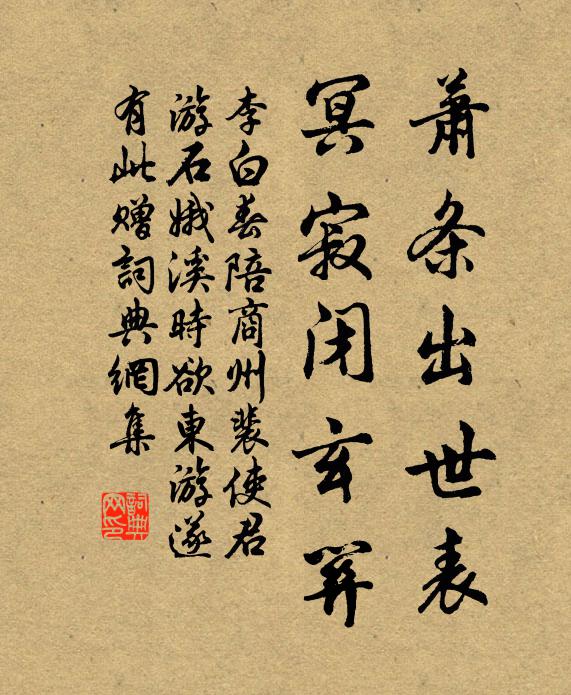 蕭条出世表
冥寂闭玄关
李白春陪商州裴使君
游石娥溪時欲東游遂
有此贈詞典網集
詞典
网印